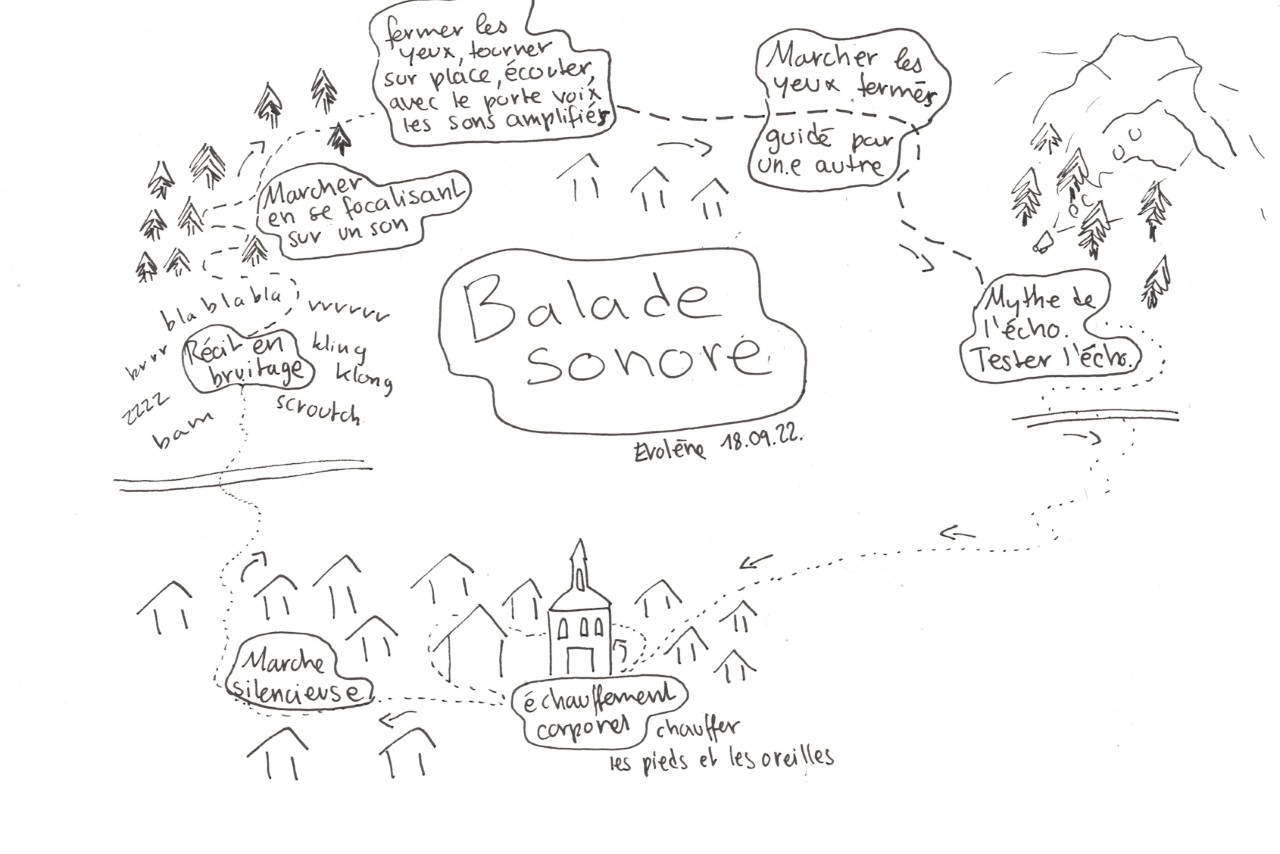 fermer les
yeux, tourner
sur place, écouter,
avec le porte voix
les sons amplifiés
Marcher les
yeux fermés
guidé par
un.e autre
Marcher
en se focalisant
sur un son
Balade
sonore
Evolène 18.09.22.
Mythe de
l'écho.
Tester l'écho.
bla bla bla
vvvvvv
brrr
Récit en
bruitage
kling
klong
zzzz
bam
scroutch
Marche
silencieuse
échauffement
corporel
chauffer
les pieds et les oreilles